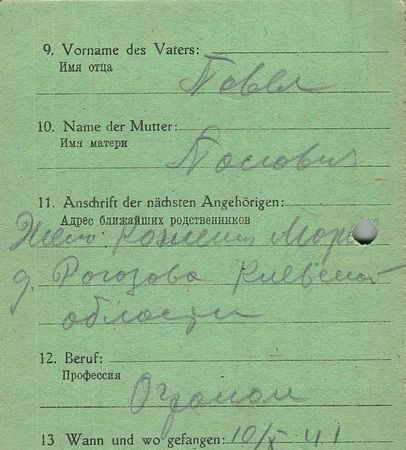 9. Vorname des Vaters:
Имя отца
Павел
10. Name der Mutter:
Имя матери
11. Anschrift der nächsten Angehörigen:
Адрес ближайших родственников
Жена
д. Рогозова Киевской
области
12. Beruf:
Профессия
Огроном
13 Wann und wo gefangen: 10/X 41